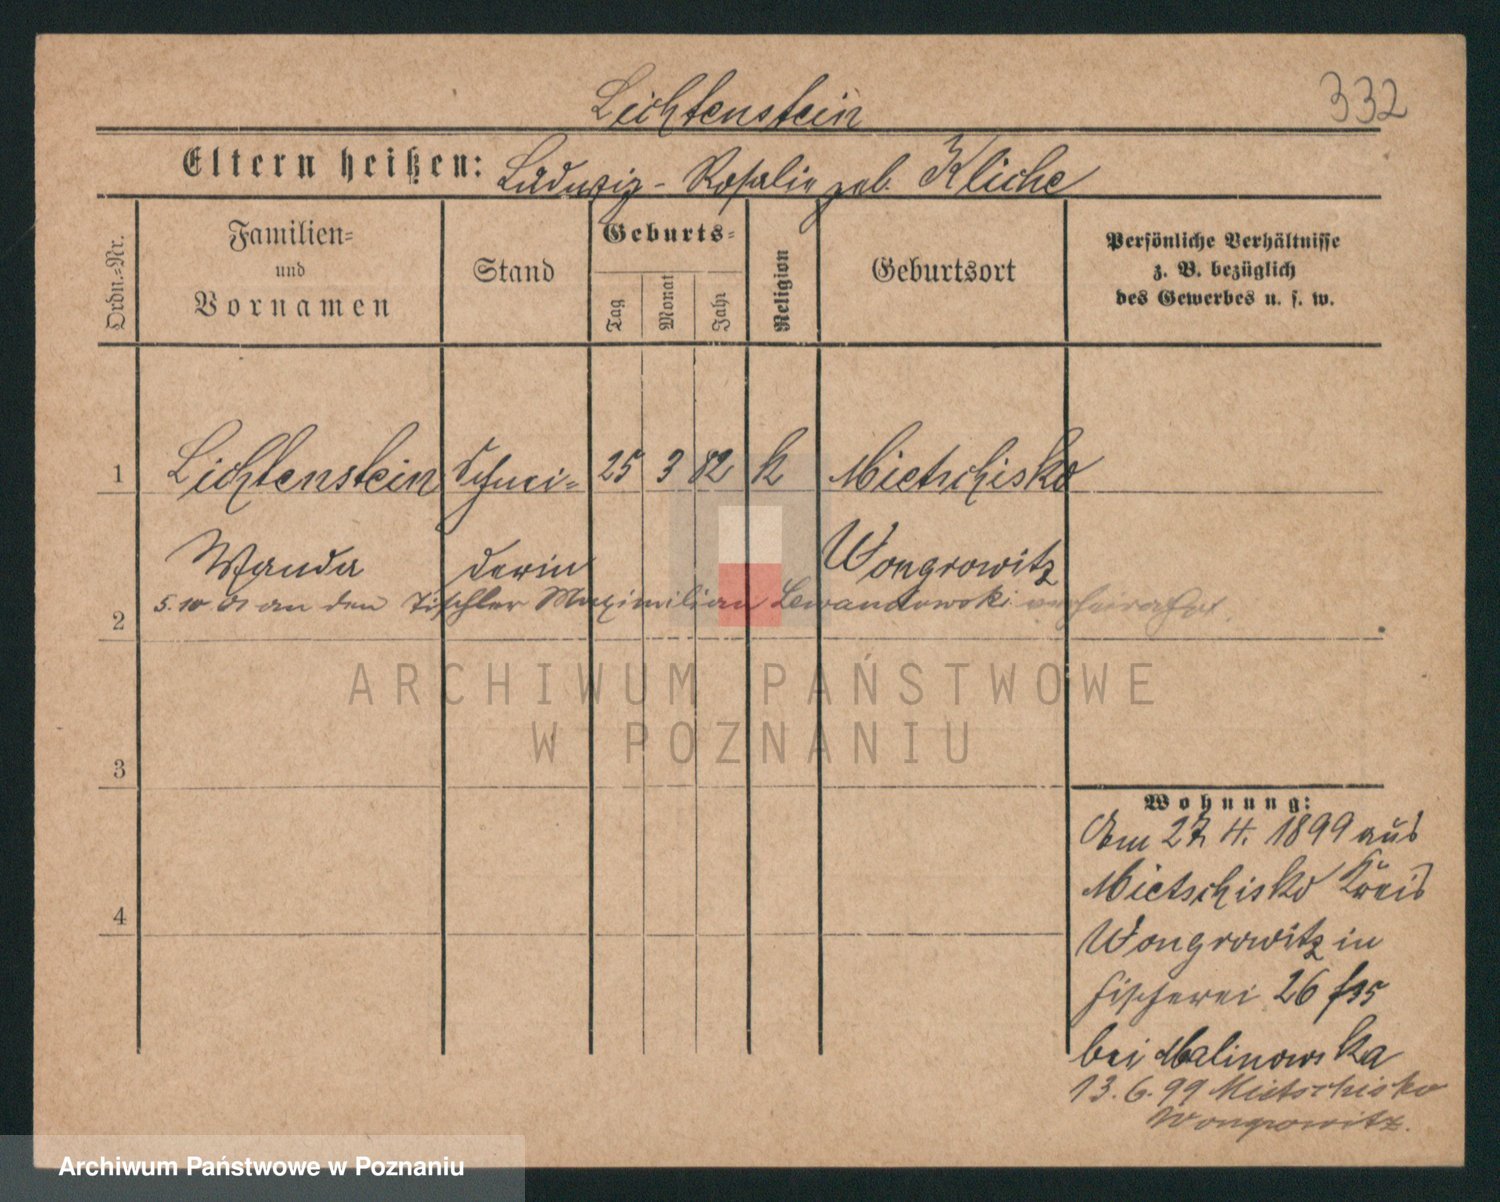 Lichtenstein
332
Eltern heißen: Ludwig - Rosalie geb. Kliche
Ordn.=Nr.
Familien=
und
Vornamen
Stand
Geburts=
Tag
Monat
Jahr
Religion
Geburtsort
Persönliche Verhältnisse
z. B. bezüglich
des Gewerbes u. s. w.
1 Lichtenstein Schnei= 25 3 82 k Mietschisko
Wanda derin Wongrowitz
5.10 01 an den Tischler Maximilian Lewandowski verheirathet.
2
3
4
Wohnung:
Am 27. 4. 1899 aus
Mietschisko Kreis
Wongrowitz in
Fischerei 26
bei Malinowska
13.6.99 Mietschisko
Wongrowitz.
ARCHIWUM PAŃSTWOWE
W POZNANIU
Archiwum Państwowe w Poznaniu